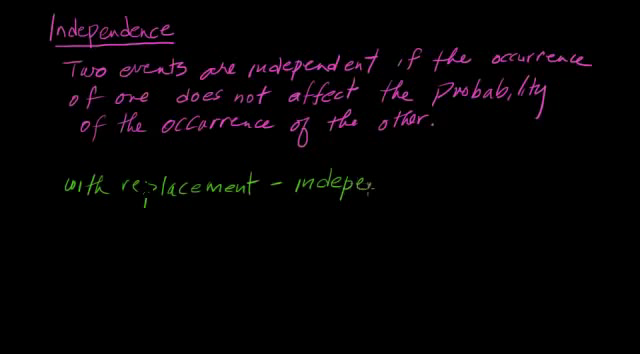 Independence
Two events are independent if the occurrence
of one does not affect the Probability
of the occurrence of the other.
with replacement - indepe